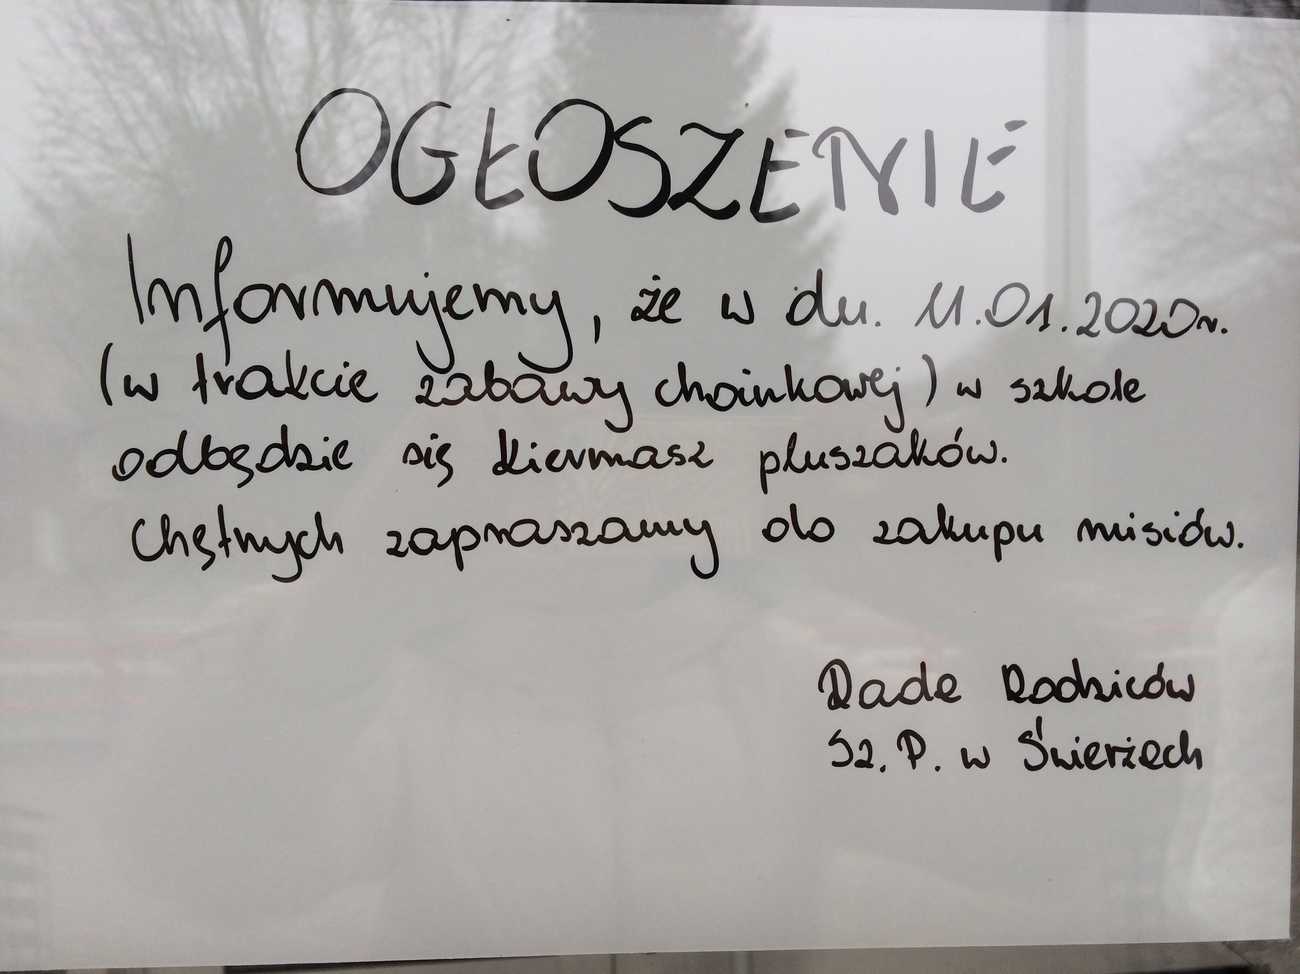 OGŁOSZENIE
Informujemy, że w dn. 11.01.2020r.
(w trakcie zabawy choinkowej) w szkole
odbędzie się kiermasz pluszaków.
Chętnych zapraszamy do zakupu misiów.
Rada Rodziców
Sz. P. w Świerżach